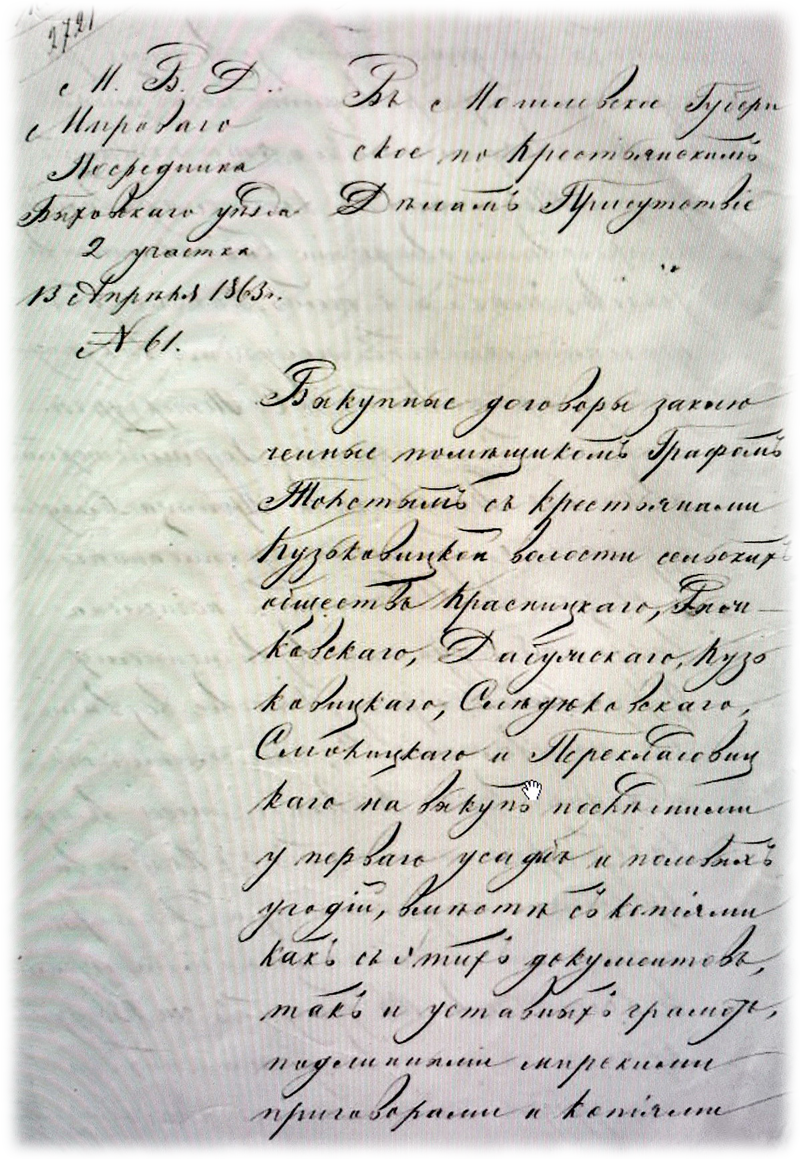 2721
М. В. Д.
Мироваго
Посредника
Быховскаго уѣзда
2 участка
13 Апрѣля 1863г.
№ 61.
Въ Могилевское Губерн
ское по Крестьянскимъ
Дѣламъ Присутствіе
Выкупные договоры заклю
ченные помѣщикомъ Графомъ
Толстымъ съ крестьянами
Кузьковицкой волости сельскихъ
обществъ Красницкаго,
ковскаго, Дабужскаго, Кузь
ковицкаго, Слѣдюковскаго,
Смолицкаго и Переклаговиц
каго на выкупъ послѣдними
у перваго усадьбъ и полевыхъ
угодій, вмѣстѣ съ копіями
какъ съ этихъ документовъ,
такъ и уставныхъ грамотъ,
подлинными мирскими
приговорами и копіями